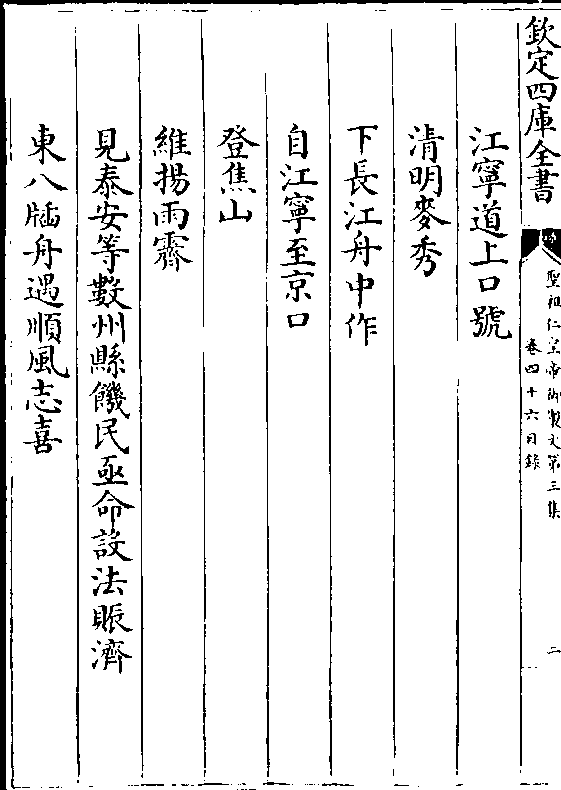 欽定四庫全書
聖祖仁皇帝御製文第三集
卷四十六目錄
二
江寧道上口號
清明麥秀
下長江舟中作
自江寧至京口
登焦山
維揚雨霽
見泰安等數州縣饑民亟命設法賑濟
東八牐舟遇順風志喜